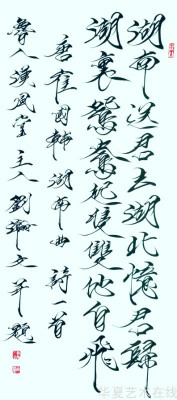 湖南送君去湖北憶君歸
湖裏鴛鴦鳥雙雙他自飛
唐崔國輔湖南曲詩一首
魯人漢風堂主人劉
华夏艺术在线